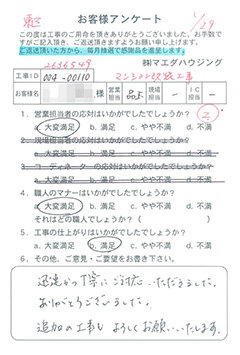 お客様アンケート
1/29
この度は工事のご用命を頂きありがとうございました。お手数で
すがご記入頂き、ご返送頂きますようお願い申し上げます。
ご返送頂いた方から、毎月抽選で感謝品を進呈します。
㈱マエダハウジング
工事ID 004-00110
マンション改装工事
お客様名 様 営業担当 工事担当 IC担当
1. 営業担当者の応対はいかがでしたでしょうか?
a. 大変満足 b. 満足 c. やや不満 d. 不満
2. 現場担当者の応対はいかがでしたでしょうか?
a. 大変満足 b. 満足 c. やや不満 d. 不満
3. コーディネーターの応対はいかがでしたでしょうか?
a. 大変満足 b. 満足 c. やや不満 d. 不満
4. 職人のマナーはいかがでしたでしょうか?
a. 大変満足 b. 満足 c. やや不満 d. 不満
それはどの職人でしょうか? ( )
5. 工事の仕上がりはいかがでしたでしょうか?
a. 大変満足 b. 満足 c. やや不満 d. 不満
6. その他、ご意見・ご要望をお書き下さい。
迅速かつ丁寧にご対応いただきました。
ありがとうございました。
追加の工事もよろしくお願いいたします。